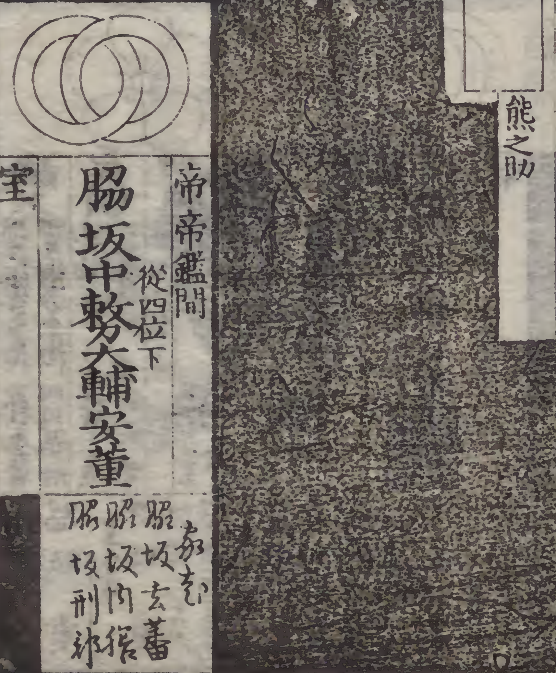 熊之助
帝帝鑑間
從四位下
脇坂中務大輔安董
家老
脇坂玄蕃
脇坂内膳
脇坂刑部
室